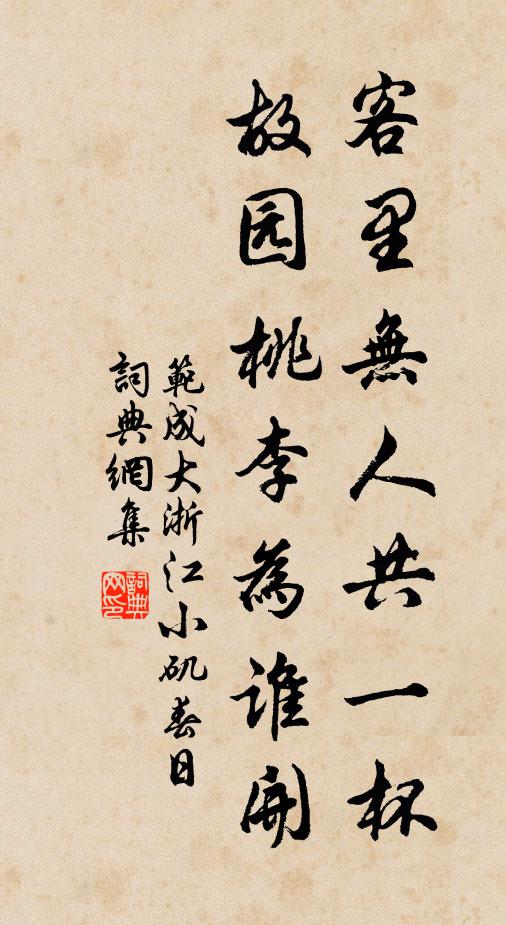 客里無人共一杯
故园桃李為誰開
範成大浙江小矶春日
詞典網集
詞典
网印